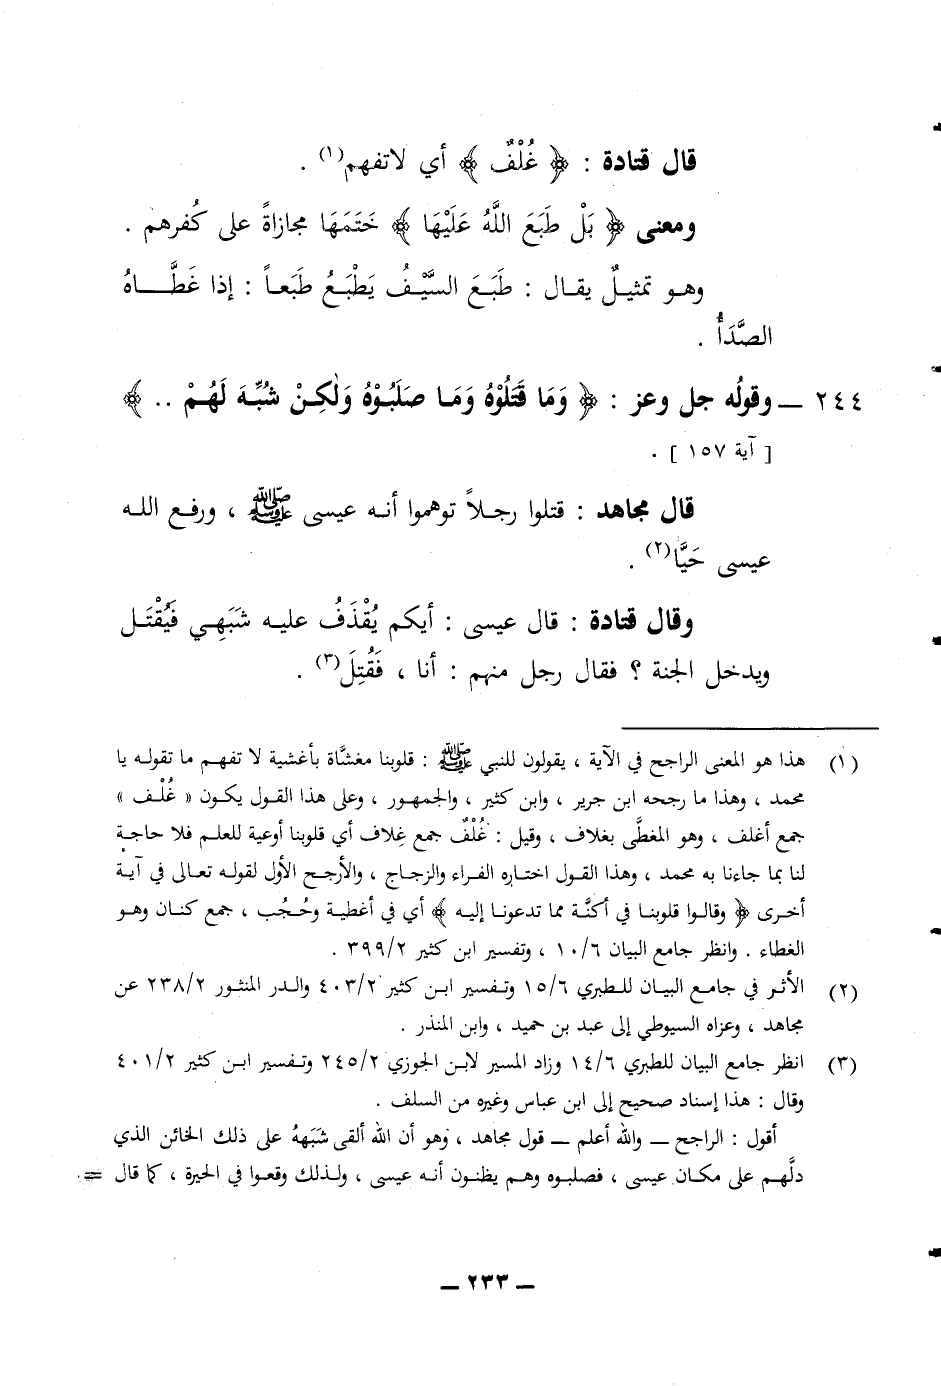 قال قتادة : ﴿ غُلْفٌ ﴾ أي لاتفهم(١) .
ومعنى ﴿ بَلْ طَبَعَ اللَّهُ عَلَيْهَا ﴾ خَتَمَهَا مجازاةً على كُفرهم .
وهو تمثيلٌ يقال : طَبَعَ السَّيْفُ يَطْبَعُ طَبَعاً : إذا غَطَّاهُ
الصَّدَأُ .
٢٤٤ ــ وقولُه جل وعز : ﴿ وَمَا قَتَلُوْهُ وَمَا صَلَبُوْهُ وَلٰكِنْ شُبِّهَ لَهُمْ .. ﴾
[ آية ١٥٧ ] .
قال مجاهد : قتلوا رجلاً توهموا أنه عيسى ﷺ ، ورفع الله
عيسى حَيًّا(٢) .
وقال قتادة : قال عيسى : أيكم يُقْذَفُ عليه شَبَهِي فَيُقْتَل
ويدخل الجنة ؟ فقال رجل منهم : أنا ، فَقُتِلَ(٣) .
(١) هذا هو المعنى الراجح في الآية ، يقولون للنبي ﷺ : قلوبنا مغشَّاة بأغشية لا تفهم ما تقوله يا
محمد ، وهذا ما رجحه ابن جرير ، وابن كثير ، والجمهور ، وعلى هذا القول يكون « غُلْف »
جمع أغلف ، وهو المغطَّى بغلاف ، وقيل : غُلْفٌ جمع غِلاف أي قلوبنا أوعية للعلم فلا حاجة
لنا بما جاءنا به محمد ، وهذا القول اختاره الفراء والزجاج ، والأرجح الأول لقوله تعالى في آية
أخرى ﴿ وقالوا قلوبنا في أكنَّة مما تدعونا إليه ﴾ أي في أغطية وحُجُب ، جمع كنان وهو
الغطاء . وانظر جامع البيان ١٠/٦ ، وتفسير ابن كثير ٣٩٩/٢ .
(٢) الأثر في جامع البيان للطبري ١٥/٦ وتفسير ابن كثير ٤٠٣/٢ والدر المنثور ٢٣٨/٢ عن
مجاهد ، وعزاه السيوطي إلى عبد بن حميد ، وابن المنذر .
(٣) انظر جامع البيان للطبري ١٤/٦ وزاد المسير لابن الجوزي ٢٤٥/٢ وتفسير ابن كثير ٤٠١/٢
وقال : هذا إسناد صحيح إلى ابن عباس وغيره من السلف .
أقول : الراجح ــ والله أعلم ــ قول مجاهد ، وهو أن الله ألقى شَبَهَهُ على ذلك الخائن الذي
دلَّهم على مكان عيسى ، فصلبوه وهم يظنون أنه عيسى ، ولذلك وقعوا في الحيرة ، كما قال =
ــ ٢٣٣ ــ